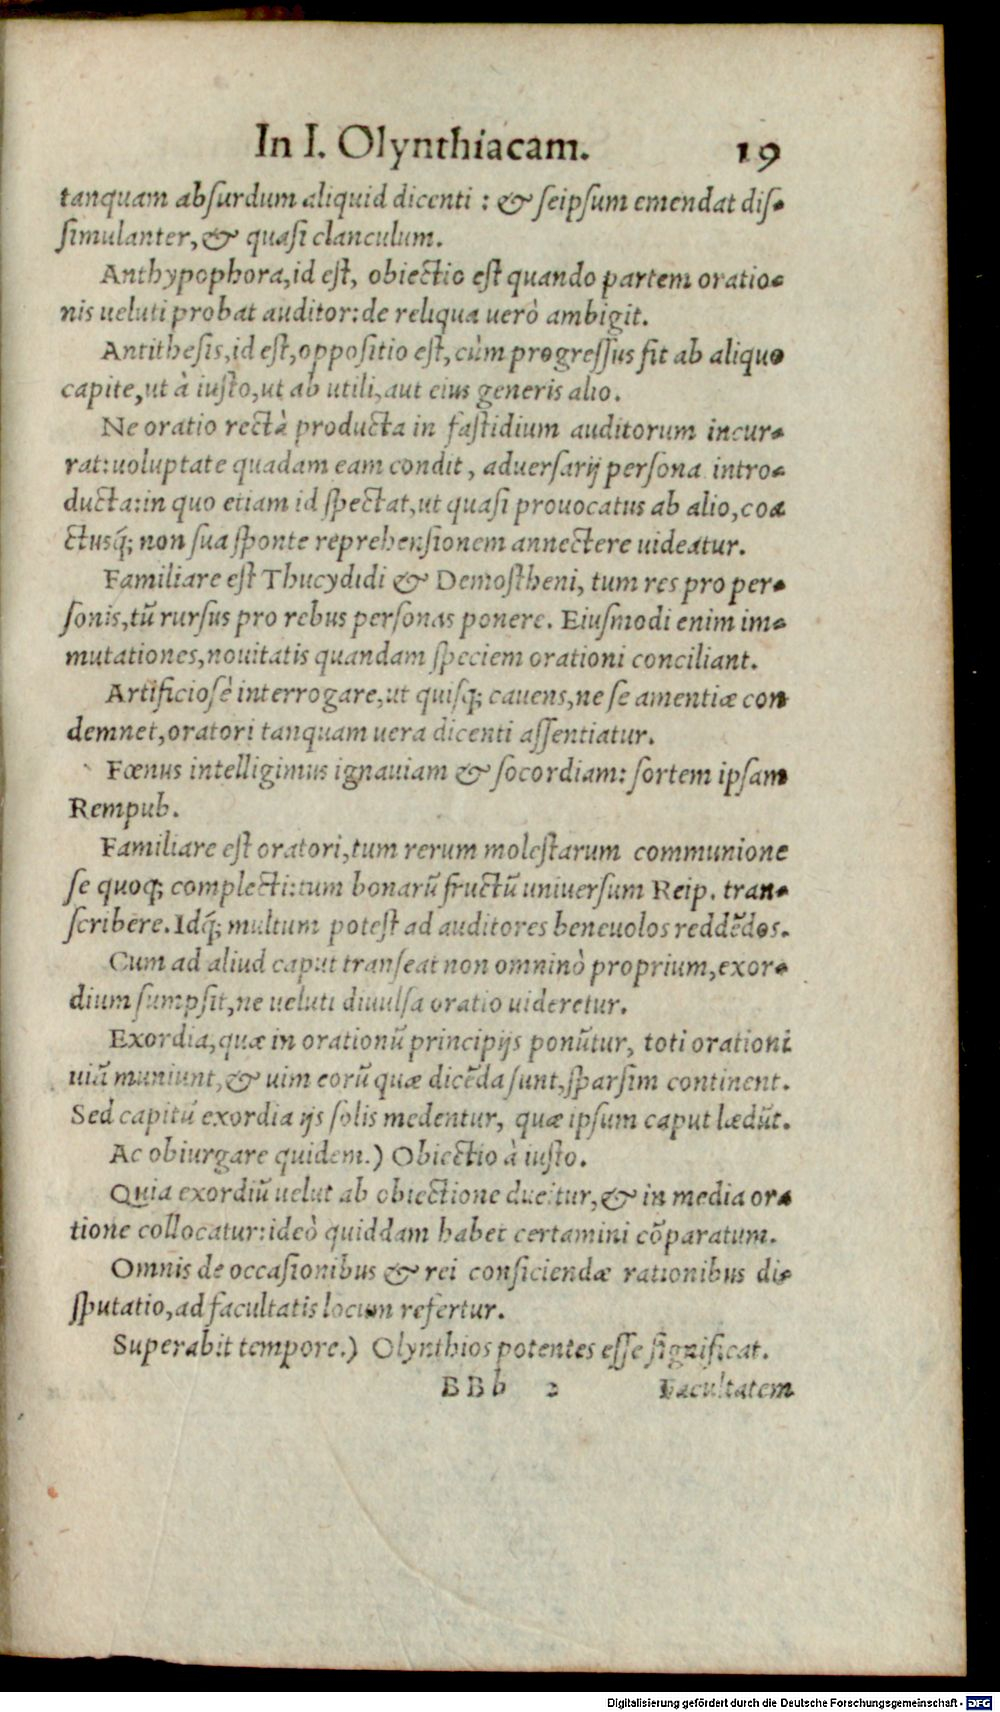 In I. Olynthiacam. 19
tanquam absurdum aliquid dicenti : & seipsum emendat dis-
simulanter, & quasi clanculum.
Anthypophora, id est, obiectio est quando partem oratio-
nis ueluti probat auditor: de reliqua uerò ambigit.
Antithesis, id est, oppositio est, cùm progressus fit ab aliquo
capite, ut à iusto, ut ab utili, aut eius generis alio.
Ne oratio rectà producta in fastidium auditorum incur-
rat: uoluptate quadam eam condit, aduersarij persona intro-
ducta: in quo etiam id spectat, ut quasi prouocatus ab alio, coa
ctusq́; non sua sponte reprehensionem annectere uideatur.
Familiare est Thucydidi & Demostheni, tum res pro per-
sonis, tũ rursus pro rebus personas ponere. Eiusmodi enim im-
mutationes, nouitatis quandam speciem orationi conciliant.
Artificiosè interrogare, ut quisq; cauens, ne se amentiæ con
demnet, oratori tanquam uera dicenti assentiatur.
Fœnus intelligimus ignauiam & socordiam: sortem ipsam
Rempub.
Familiare est oratori, tum rerum molestarum communione
se quoq; complecti: tum bonarũ fructũ uniuersum Reip. tran-
scribere. Idq́; multum potest ad auditores beneuolos reddẽdos.
Cum ad aliud caput transeat non omninò proprium, exor-
dium sumpsit, ne ueluti diuulsa oratio uideretur.
Exordia, quæ in orationũ principijs ponũtur, toti orationi
uiã muniunt, & uim eorũ quæ dicẽda sunt, sparsim continent.
Sed capitũ exordia ijs solis medentur, quæ ipsum caput lædũt.
Ac obiurgare quidem.) Obiectio à iusto.
Quia exordiũ uelut ab obiectione ducitur, & in media ora
tione collocatur: ideò quiddam habet certamini cõparatum.
Omnis de occasionibus & rei conficiendæ rationibus di-
sputatio, ad facultatis locum refertur.
Superabit tempore.) Olynthios potentes esse significat.
BBb 2 Facultatem
Digitalisierung gefördert durch die Deutsche Forschungsgemeinschaft - DFG